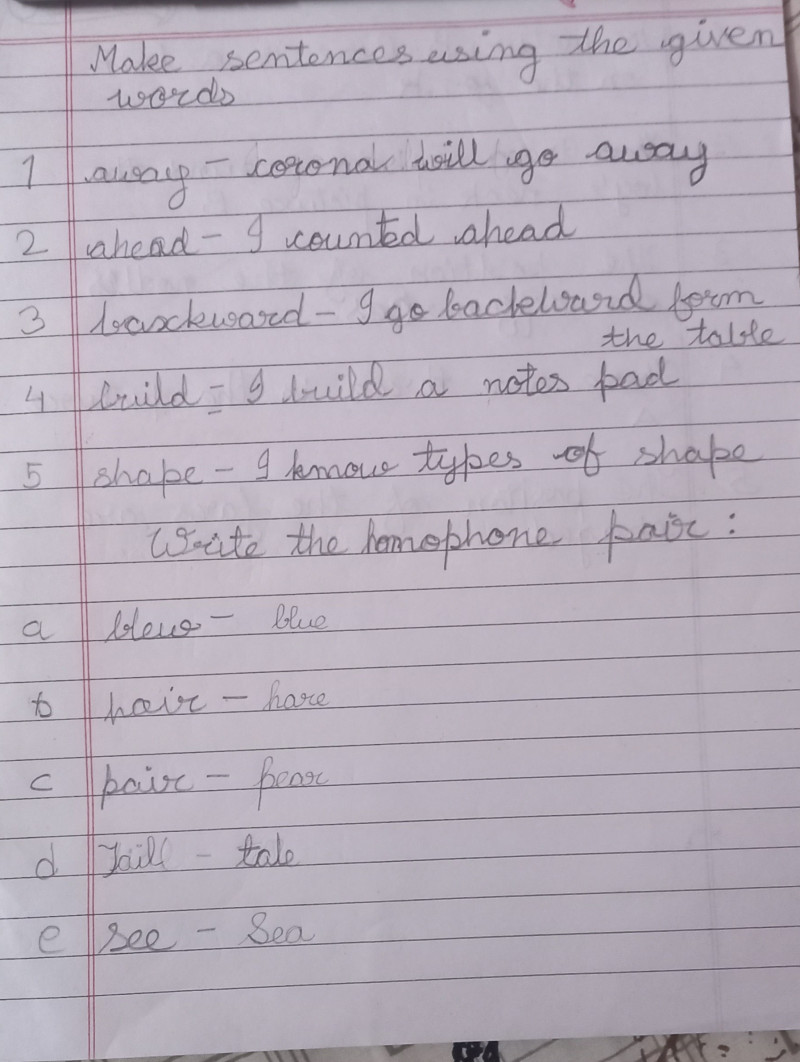 Make sentences using the given
words
1 away - corona will go away
2 ahead - I counted ahead
3 backward - I go backward form
the table
4 build = I build a notes pad
5 shape - I know types of shape
Write the homophone pair :
a blew - blue
b hair - hare
c pair - pear
d Taill - tale
e see - Sea